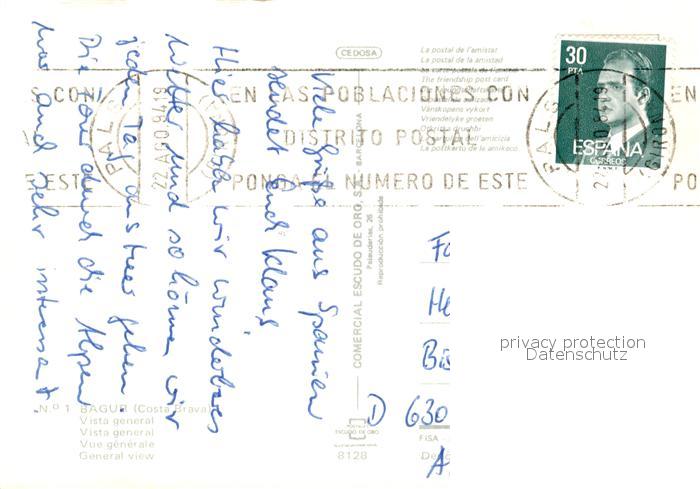 CEDOSA
La postal de l'amistat
La postal de la amistad
The friendship post card
Vänskapens vykort
Vriendelyke groeten
La poŝtkarto de la amikeco
30
PTA
ESPAÑA
CORREOS
EN LAS POBLACIONES CON
DISTRITO POSTAL
PONGA EL NUMERO DE ESTE
S CON
E ESTE
EN
PO
PALS
22 AGO 94 19
PALS
GIRON
Viele Grüße aus Spanien
sendet Euch Klaus
Hier haben wir wunderbares
Wetter und so können wir
jeden Tag ans Meer gehen.
Die Tour durch die Alpen
war auch sehr interessant
COMERCIAL ESCUDO DE ORO, S.A. BARCELONA
Palaudarias, 26
Reproducción prohibida
N.º 1 BAGUR (Costa Brava)
Vista general
Vista general
Vue générale
General view
ESCUDO DE ORO
8128
FISA
He
D 630
privacy protection
Datenschutz